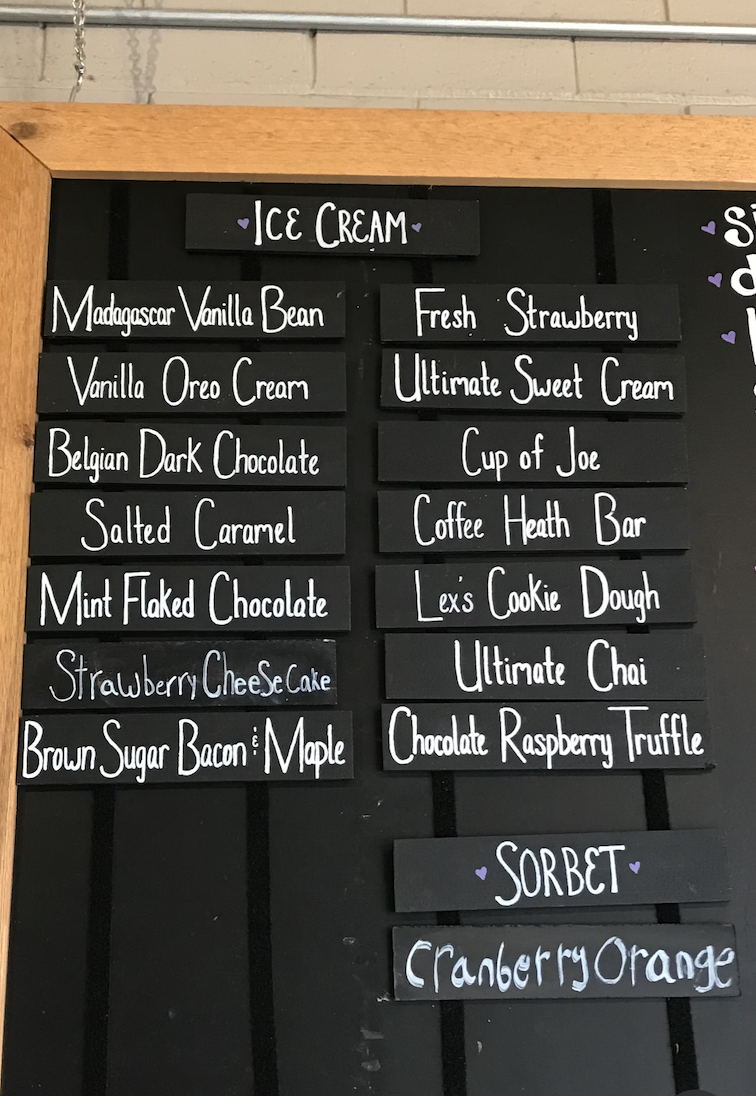 ICE CREAM
Madagascar Vanilla Bean
Vanilla Oreo Cream
Belgian Dark Chocolate
Salted Caramel
Mint Flaked Chocolate
Strawberry CheeSe Cake
Brown Sugar Bacon & Maple
Fresh Strawberry
Ultimate Sweet Cream
Cup of Joe
Coffee Heath Bar
Lex's Cookie Dough
Ultimate Chai
Chocolate Raspberry Truffle
SORBET
Cranberry Orange